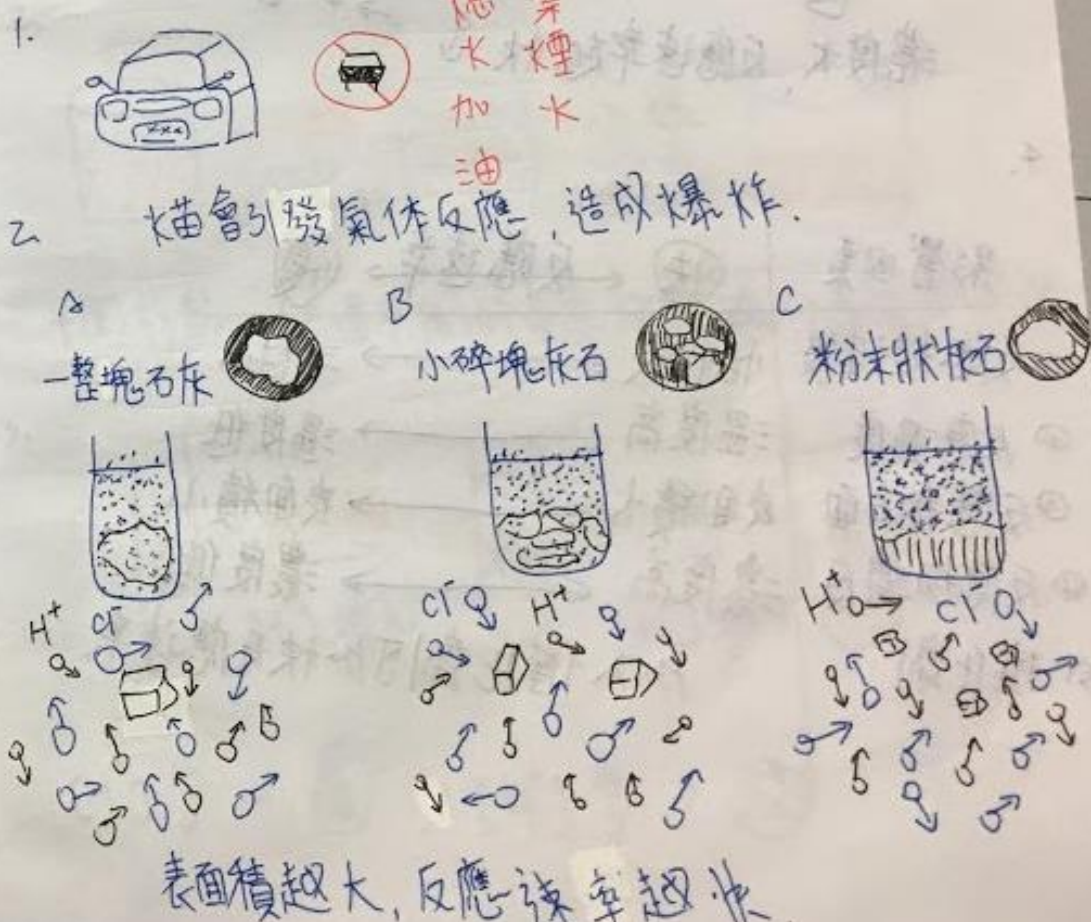 1.
熄火加油
禁煙火
2 火苗會引發氣体反應,造成爆炸.
A
一整塊石灰
B
小碎塊灰石
C
粉末狀灰石
H+ Cl-
Cl- H+
H+ Cl-
表面積越大,反應速率越快